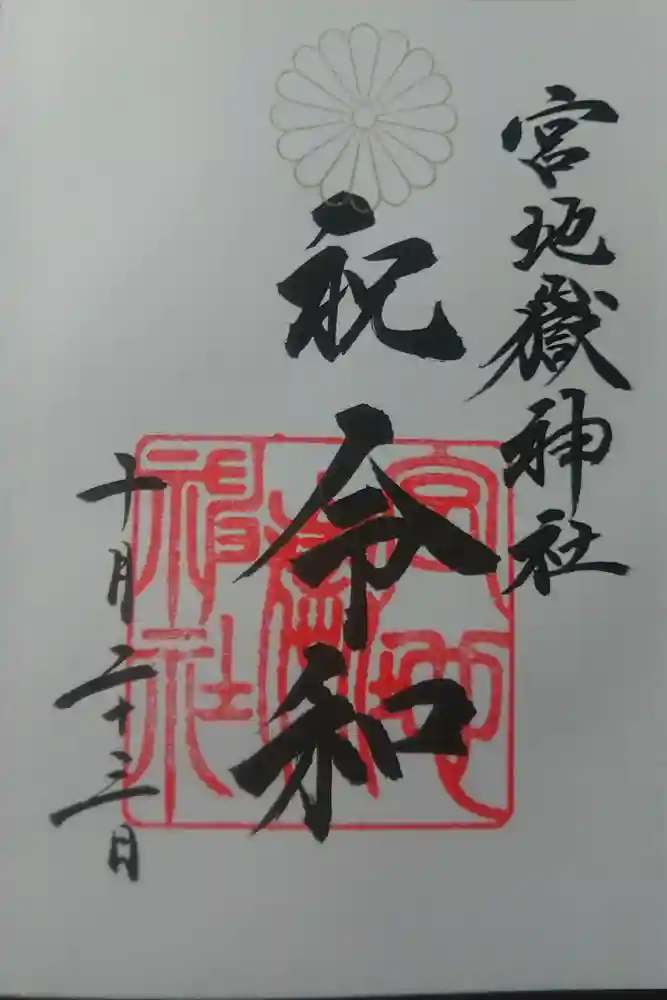 宮地嶽神社
祝令和
十月二十三日
宮地嶽神社